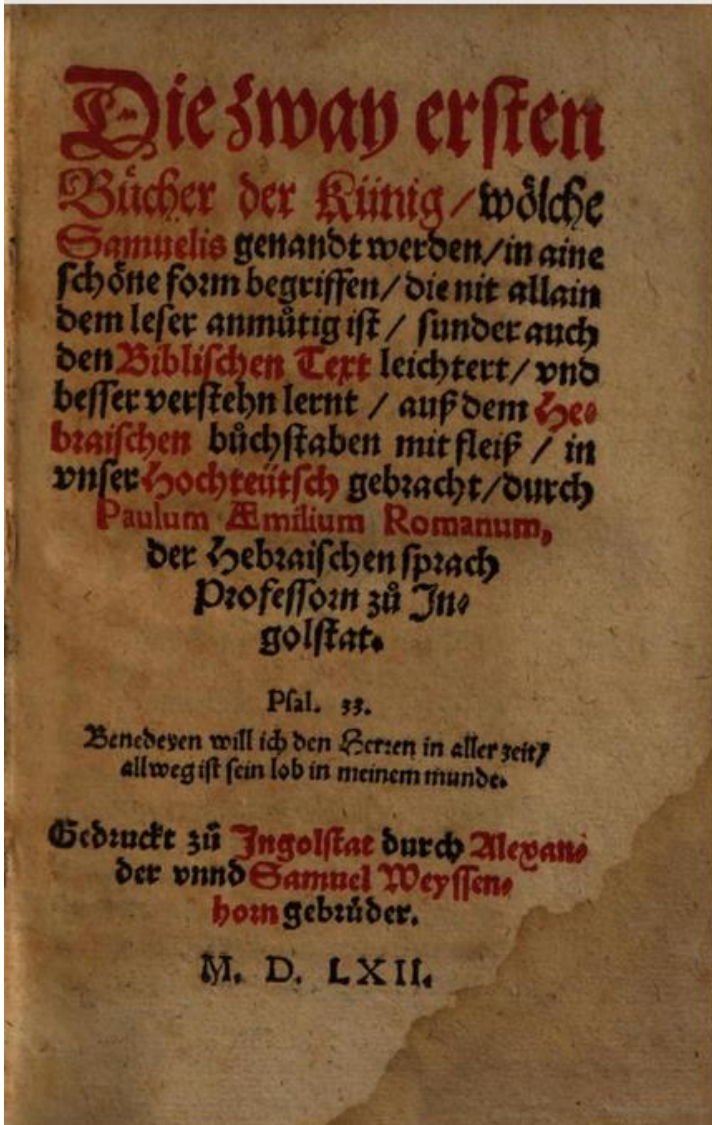 Die zway ersten
Bücher der Künig / wölche
Samuelis genandt werden / in aine
schöne form begriffen / die nit allain
dem leser anmůtig ist / sunder auch
den Biblischen Text leichtert / vnd
besser verstehn lernt / auß dem He⸗
braischen bůchstaben mit fleiß / in
vnser Hochteütsch gebracht / durch
Paulum Æmilium Romanum,
der Hebraischen sprach
Professorn zů In⸗
golstat.
Psal. 33.
Benedeyen will ich den Herren in aller zeit /
allweg ist sein lob in meinem munde.
Gedruckt zů Ingolstat durch Alexan⸗
der vnnd Samuel Weyssen⸗
horn gebrüder.
M. D. LXII.